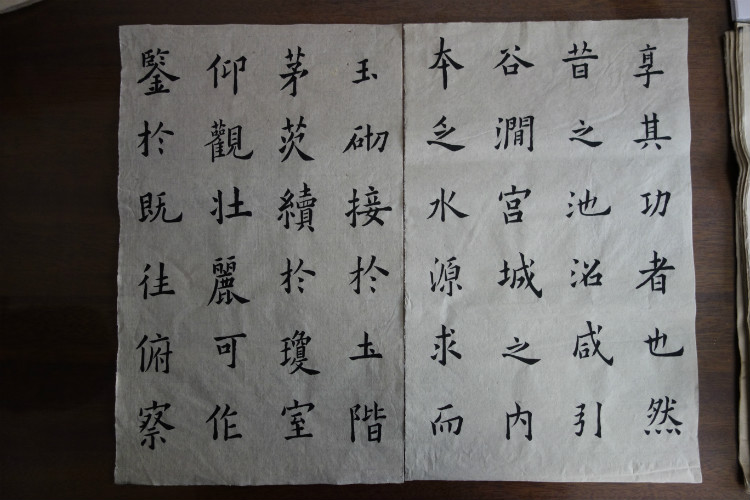 享其功者也然
昔之池沼咸引
谷澗宮城之内
本乏水源求而
玉砌接於土階
茅茨續於瓊室
仰觀壯麗可作
鑒於既往俯察